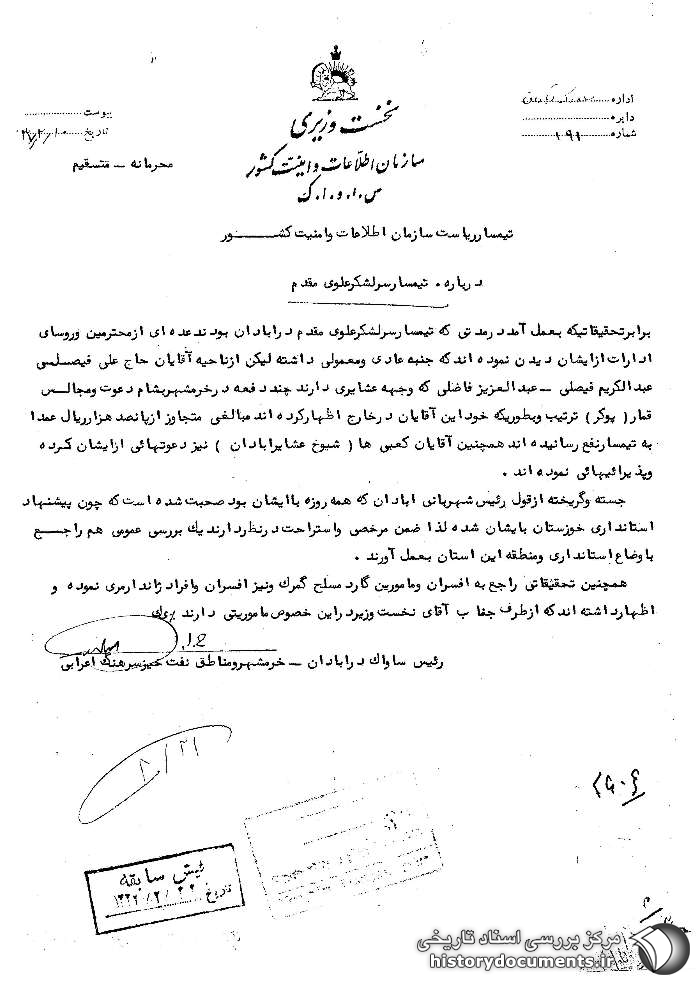 نخست وزیری
سازمان اطلاعات و امنیت کشور
س.ا.و.ا.ک
اداره
دایره
شماره ۱۹۱
پیوست
تاریخ
محرمانه – مستقیم
تیمسار ریاست سازمان اطلاعات وامنیت کشور
درباره . تیمسار سرلشکر علوی مقدم
برابر تحقیقاتیکه بعمل آمد درمدتی که تیمسار سرلشکر علوی مقدم درابادان بودند عده ای ازمحترمین وروسای
ادارات ازایشان دیدن نموده اند که جنبه عادی ومعمولی داشته لیکن ازناحیه آقایان حاج علی فیصلی
عبدالکریم فیصلی – عبدالعزیز فاضلی که وجهه عشایری دارند چند دفعه درخرمشهر بشام دعوت ومجالس
قمار ( پوکر ) ترتیب وبطوریکه خود این آقایان درخارج اظهارکرده اند مبالغی متجاوز ازپانصد هزار ریال عمدا
به تیمسار نفع رسانیده اند همچنین آقایان کعبی ها ( شیوخ عشایر ابادان ) نیز دعوتهائی ازایشان کرده
وپذیرائیهائی نموده اند .
جسته وگریخته ازقول رئیس شهربانی ابادان که همه روزه باایشان بود صحبت شده است که چون پیشنهاد
استانداری خوزستان بایشان شده لذا ضمن مرخصی واستراحت درنظردارند یك بررسی عمومی هم راجع
باوضاع استانداری ومنطقه این استان بعمل آورند .
همچنین تحقیقاتی راجع به افسران ومامورین گارد مسلح گمرك ونیز افسران وافراد ژاندارمری نموده و
اظهارداشته اند که ازطرف جناب آقای نخست وزیر دراین خصوص ماموریتی دارند
رئیس ساواك درابادان – خرمشهر ومناطق نفت خیز سرهنگ اعرابی
۲/۲۱
فیش سابقه
تاریخ ۱۳۳۷/۲/۲۲
مرکز بررسی اسناد تاریخی
historydocuments.ir